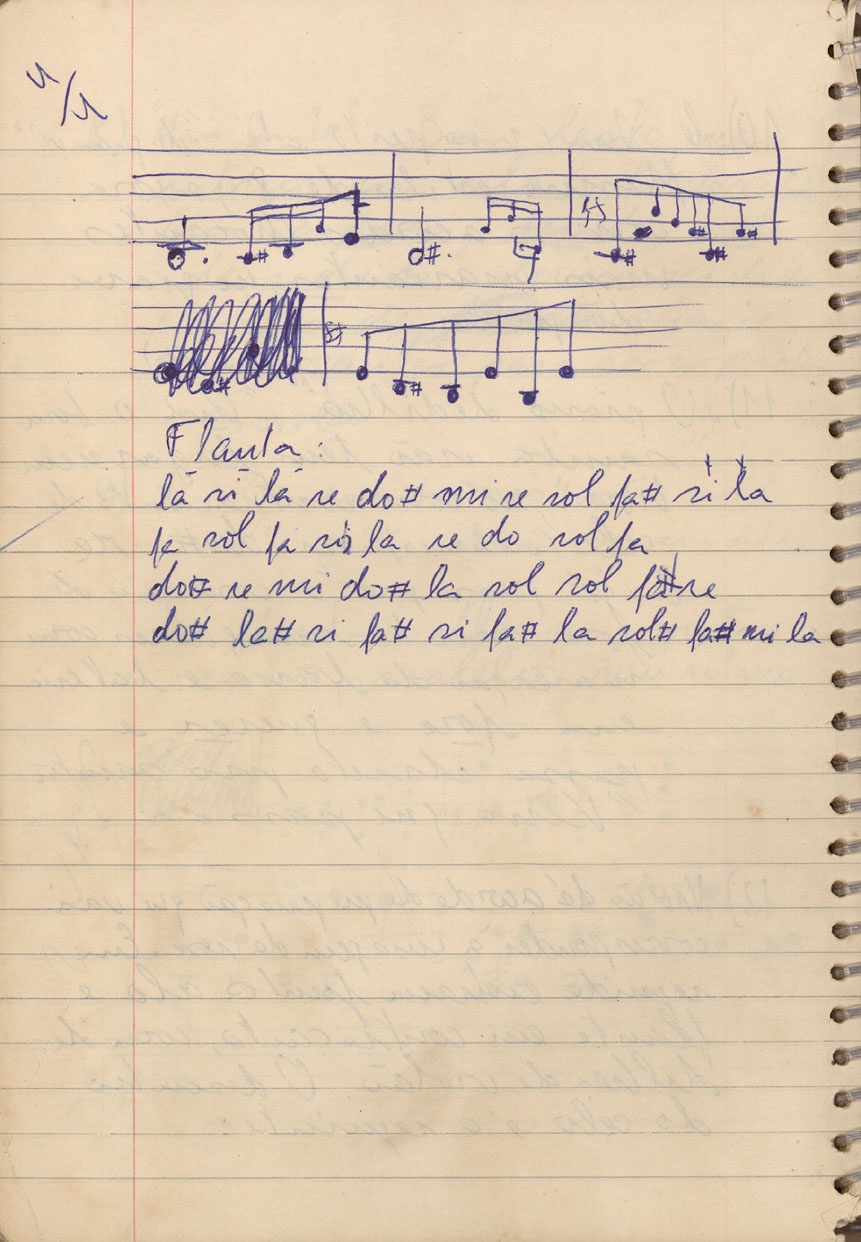 Flauta:
lá si lá re do# mi re sol fa# si la
fa sol fa si la re do sol fa
do# re mi do# la sol sol fa# re
do# la# si fa# si fa# la sol# fa# mi la